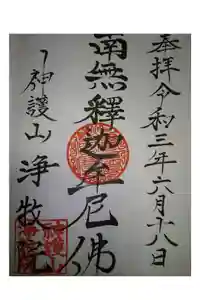 奉拝令和三年六月十八日
南無釋迦牟尼佛
神護山浄牧院